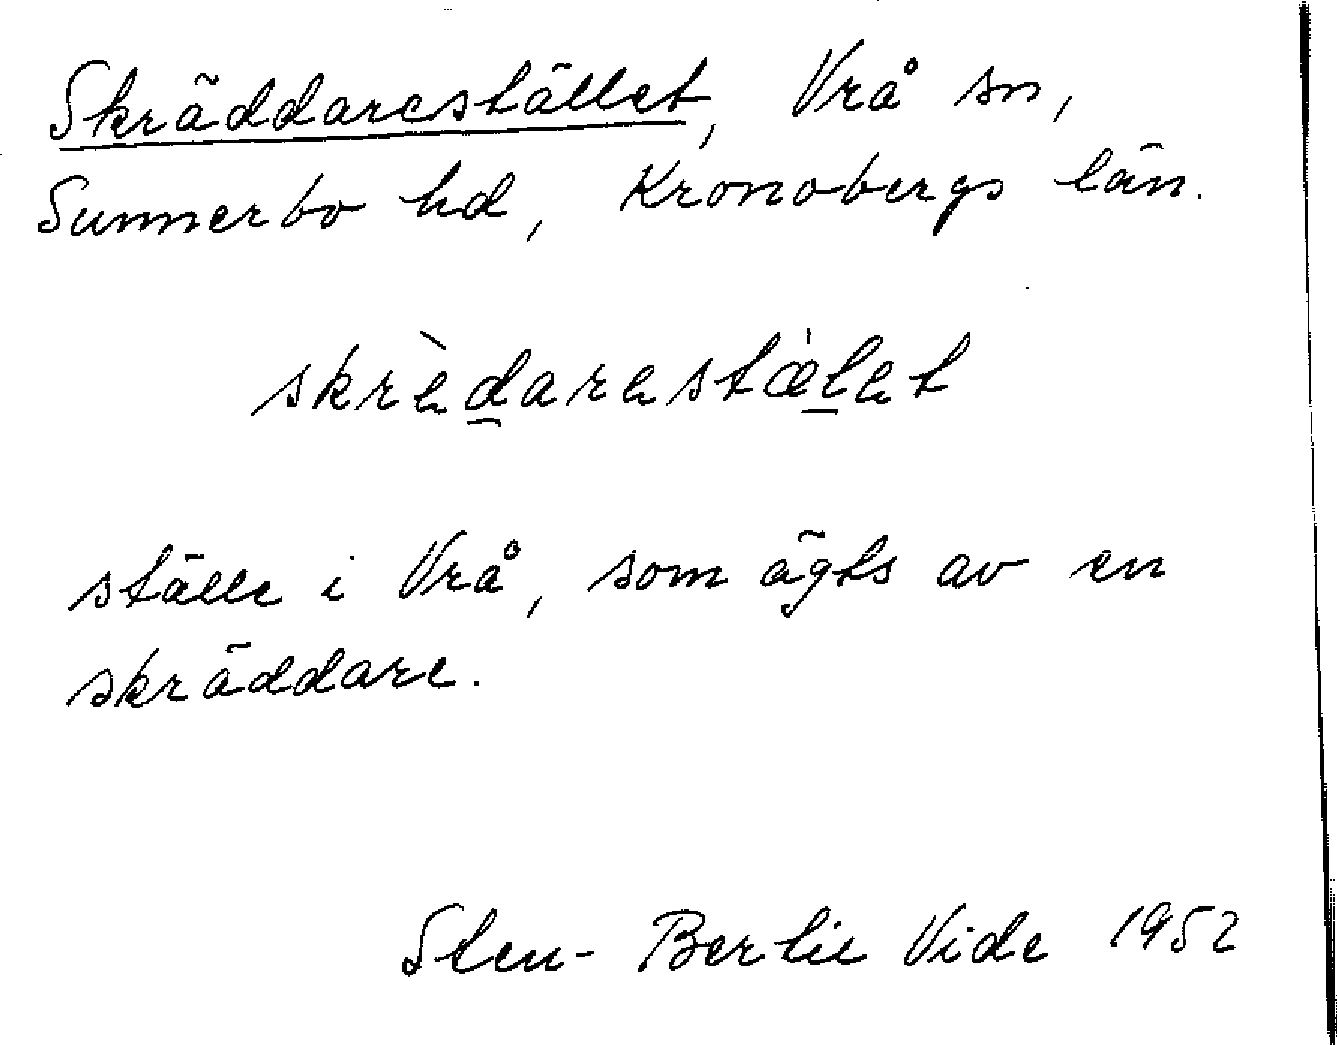 Skräddarestället, Vrå sn,
Sunnerbo hd, Kronobergs län.
skrèd̲arestæ̍l̲et
ställe i Vrå, som ägts av en
skräddare.
Sten-Bertil Vide 1952